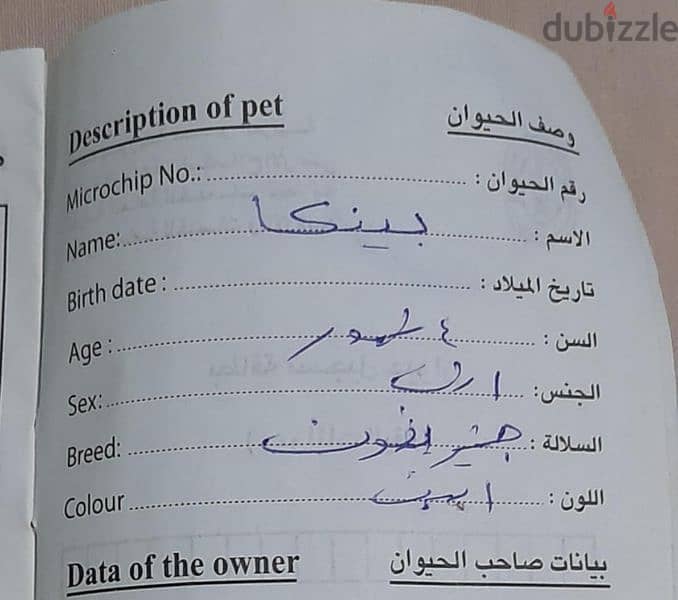 dubizzle
Description of pet وصف الحيوان
Microchip No.: رقم الحيوان :
Name: بينكا الاسم :
Birth date : تاريخ الميلاد :
Age : ٤ شهور السن :
Sex: الجنس:
Breed: السلالة :
Colour ابيض اللون :
Data of the owner بيانات صاحب الحيوان